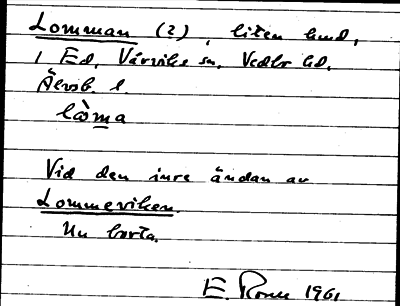 Lomman (2), liten hund,
i Ed, Värviks sn, Vedbo hd,
Älvsb. l.
låm̀a
Vid den inre ändan av
Lommeviken.
Nu borta.
E. 1961